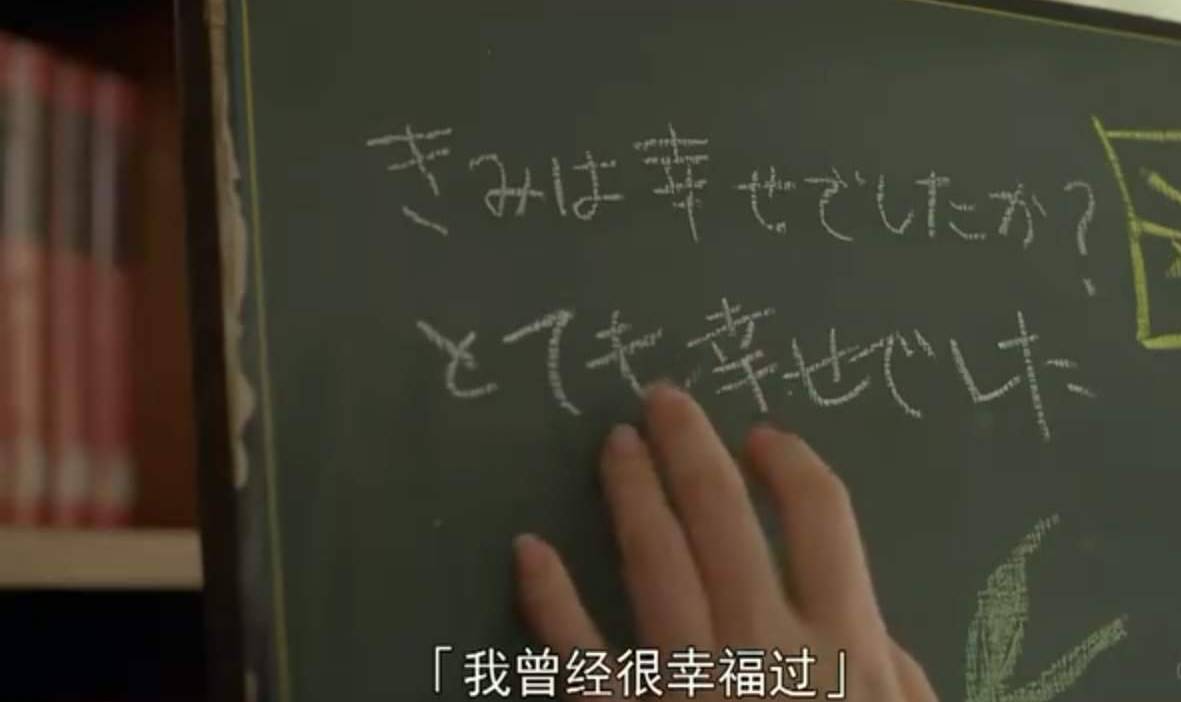 きみは幸せでしたか?
とても幸せでした
「我曾经很幸福过」